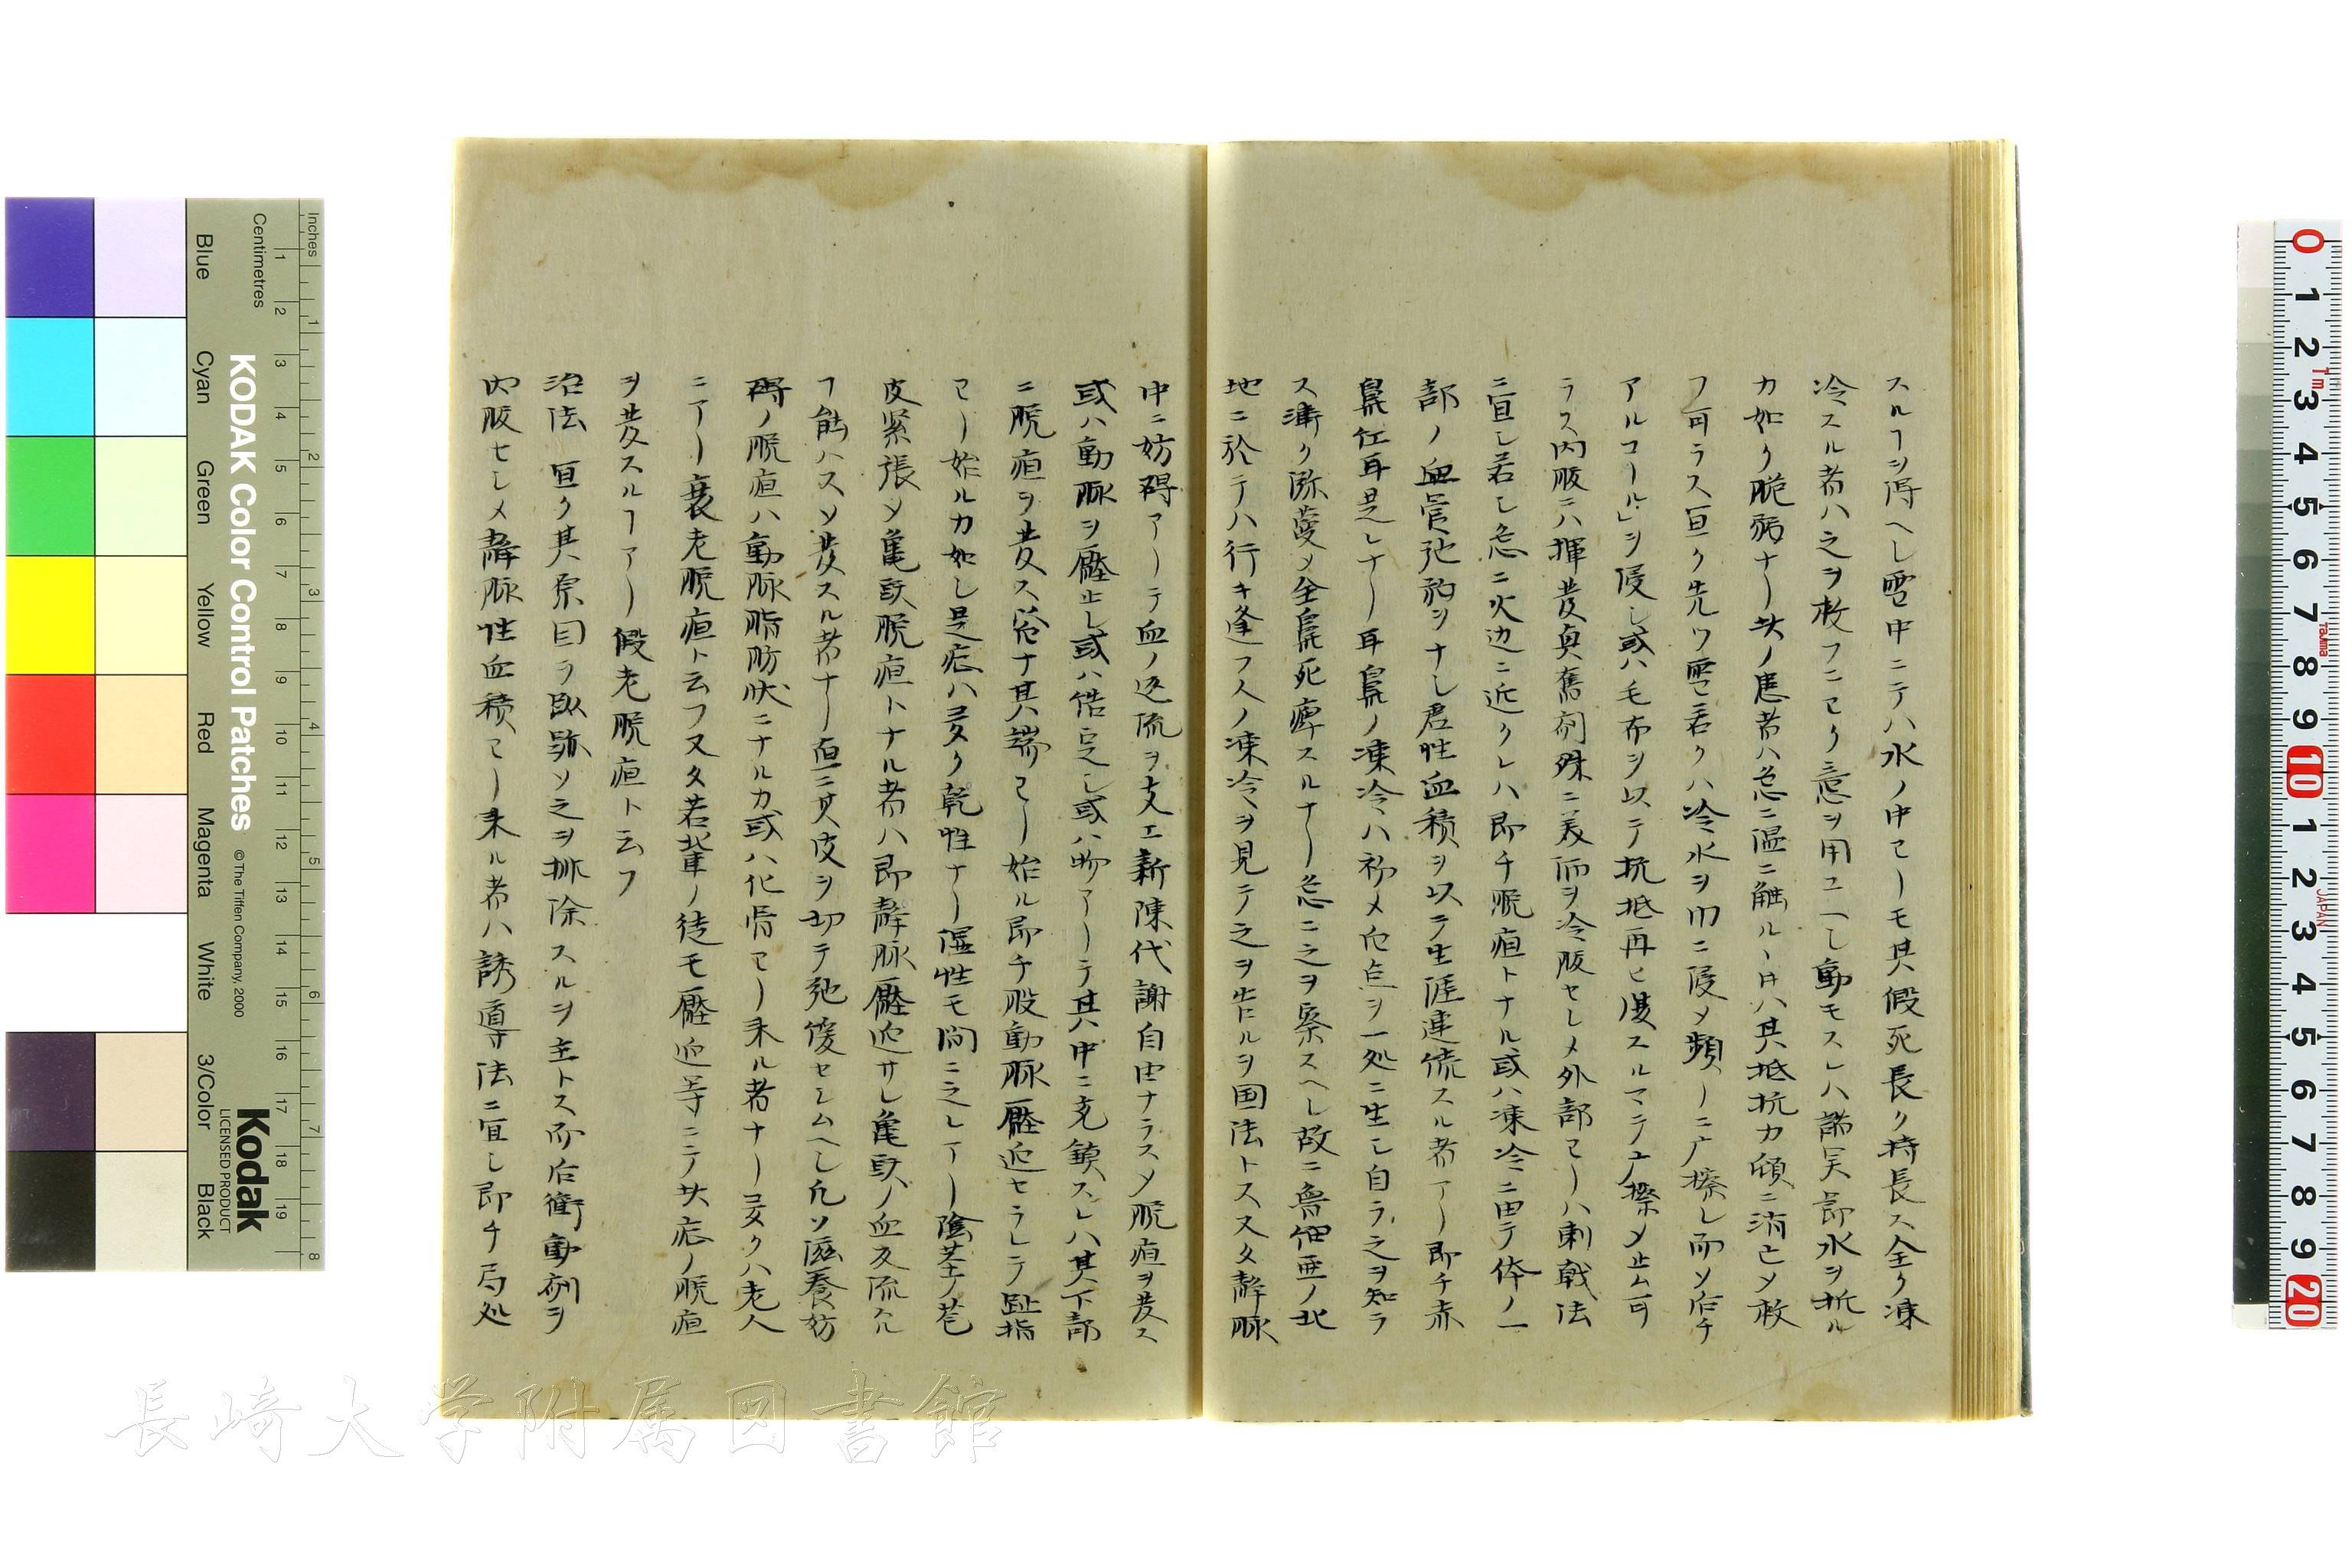 スルヿヲ得ヘシ雪中ニテハ水ノ中ヨリモ其假死長ク持長ス全ク凍
冷スル者ハ之ヲ救フニヨク意ヲ用ユヘシ動モスレハ諸臭部水ヲ抵ル
カ如ク脆弱ナリ此ノ患者ハ急ニ温ニ触ルヽ片ハ其抵抗力頓ニ消亡乄救
フ可ラス宜ク先ツ雪若クハ冷水ヲ巾ニ侵乄頻リニ广擦シ而ソ后チ
アルコール」ヲ侵シ或ハ毛布ヲ以テ抗抵再ヒ復スルマテ广擦乄止ム可
ラス内服ニハ揮発臭奮剤殊ニ美而ヲ冷服セシメ外部ヨリハ刺戟法
ニ宜シ若シ急ニ火辺ニ近クレハ即チ脱疽トナル或ハ凍冷ニ由テ体ノ一
部ノ血管弛豹ヲナシ君性血積ヲ以テ生涯連続スル者アリ即チ赤
鼻仁耳是レナリ耳鼻ノ凍冷ハ初メ白点ヲ一処ニ生シ自ラ之ヲ知ラ
ス漸ク弥蔓乄全鼻死痺スルナリ急ニ之ヲ察スヘシ故ニ魯細亜ノ北
地ニ於テハ行キ逢フ人ノ凍冷ヲ見テ之ヲ告ルヲ国法トス又タ静脉
中ニ妨碍アリテ血ノ逆流ヲ支エ新陳代謝自由ナラス乄脱疽ヲ発ス
或ハ動脉ヲ壓止シ或ハ結定シ或ハ物アリテ其中ニ充鎮スレハ其下部
ニ脱疽ヲ発ス必ナ其端ヨリ始ル即チ股動脉壓迫セラレテ趾指
ヨリ始ルカ如シ是症ハ多ク乾性ナリ湿性モ間ニ之レアリ陰茎ノ苞
皮緊張乄亀頭脱疽トナル者ハ即静脉壓迫サレ亀頭ノ血反流スル
ヿ能ハスソ発スル者ナリ直ニ其皮ヲ切テ弛緩セシムヘシ凡ソ滋養妨
碍ノ脱疽ハ動脉脂肪状ニナルカ或ハ化骨ヨリ来ル者ナリ多クハ老人
ニアリ衰老脱疽ト云フ又タ若輩ノ徒モ壓迫等ニテ此症ノ脱疽
ヲ発スルヿアリ假老脱疽ト云フ
治法 宜ク其原因ヲ臥躰ソ之ヲ排除スルヲ主トス而后衝動剤ヲ
内服セシメ静脉性血積ヨリ来ル者ハ誘導法ニ宜シ即チ局処
KODAK Color Control Patches
©The Tiffen Company, 2000
Kodak
LICENSED PRODUCT
Inches
Centimetres
Blue
Cyan
Green
Yellow
Red
Magenta
White
3/Color
Black
長崎大学附属図書館